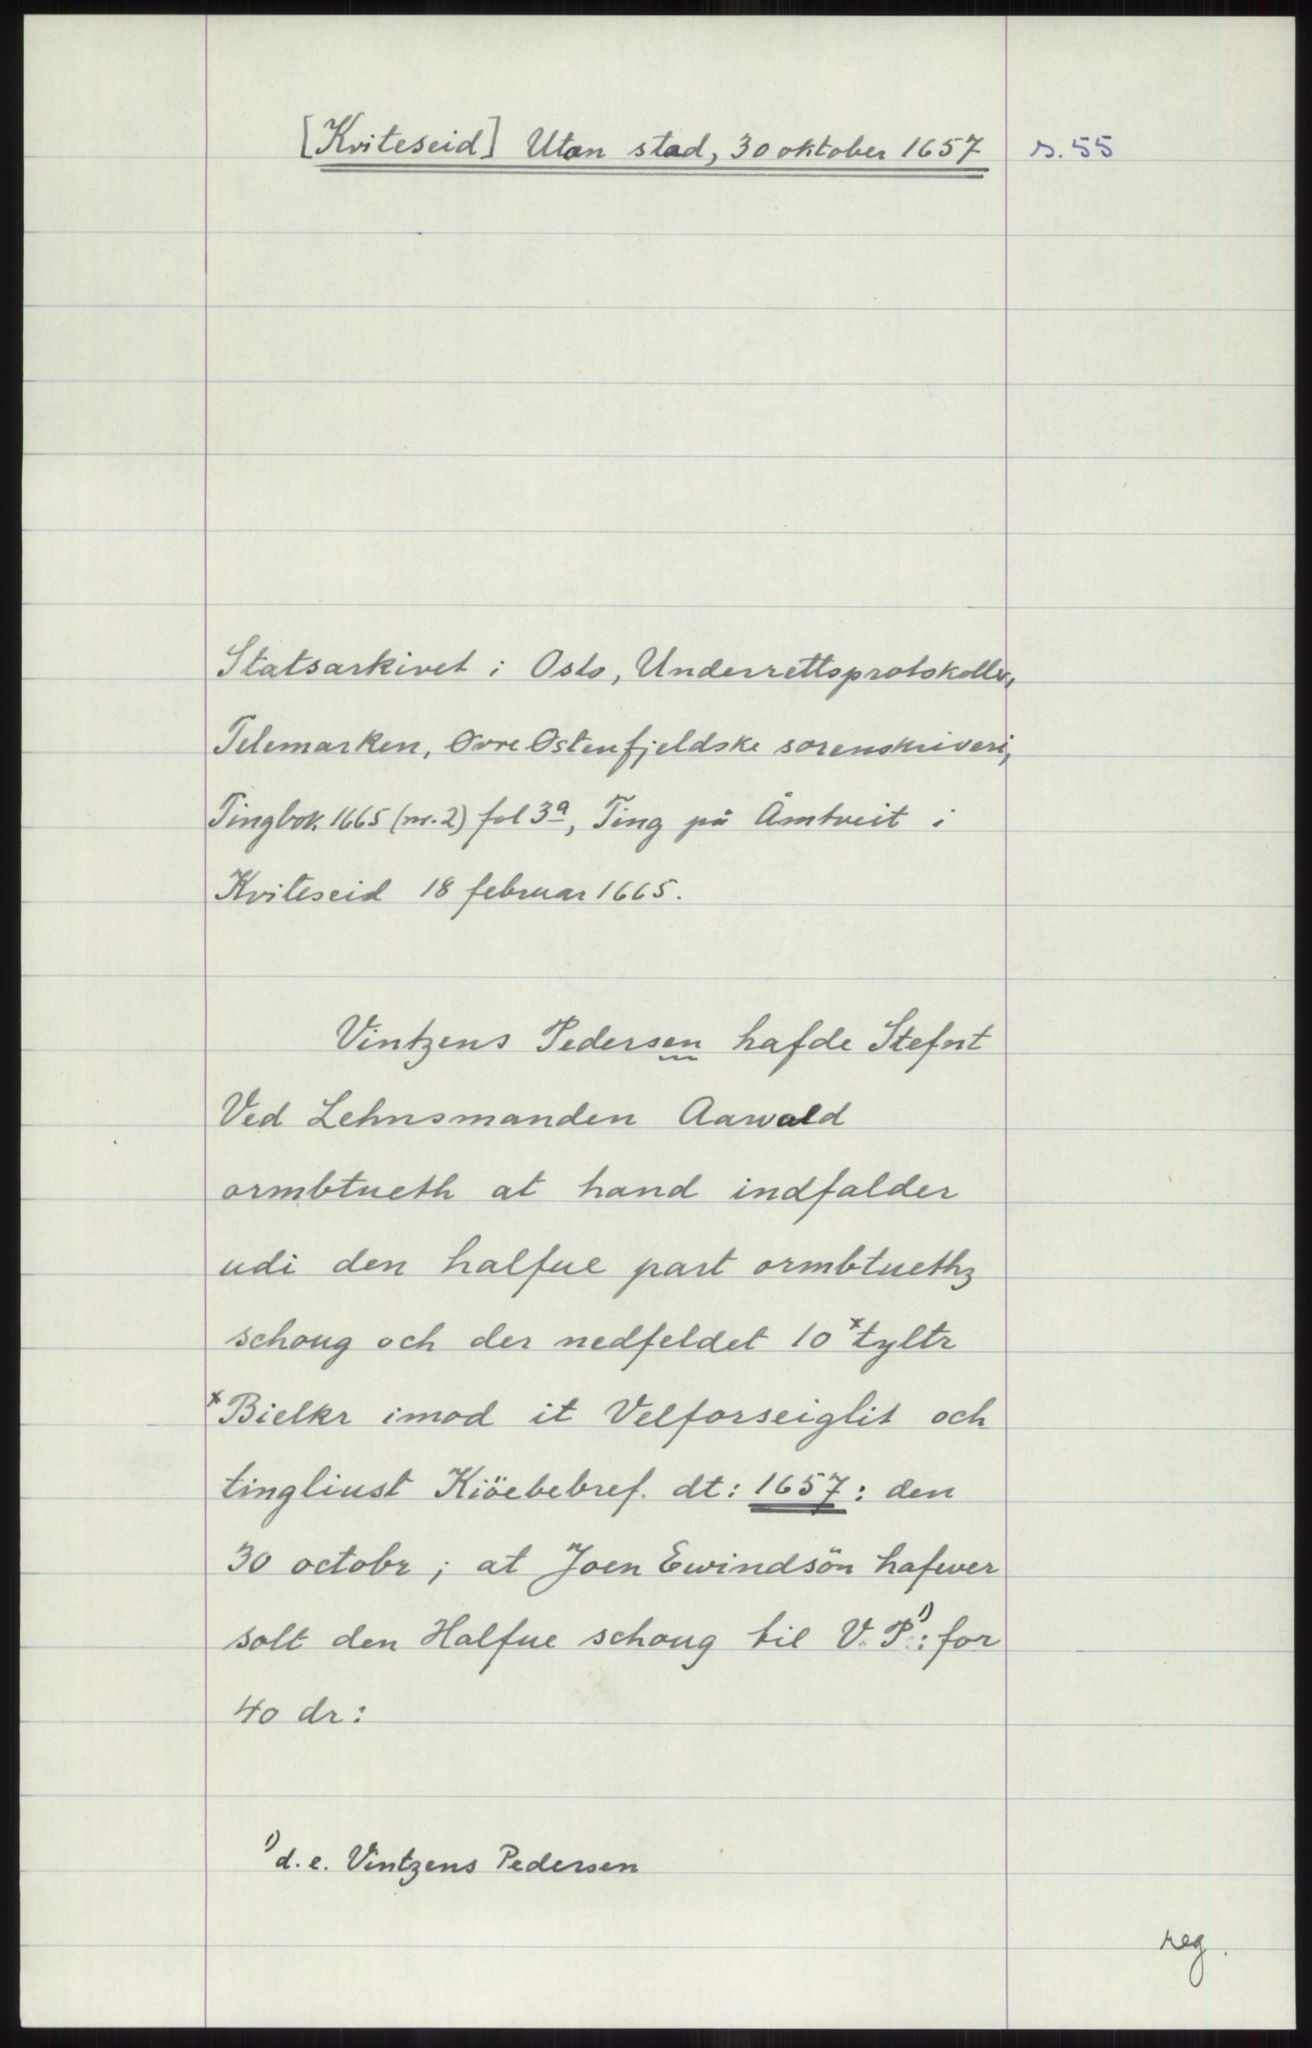 [Kviteseid] Utan stad, 30 oktober 1657 s. 55
Statsarkivet i Oslo, Underrettsprotokoller,
Telemarken, Øvre Østenfjeldske sorenskriveri,
Tingbok 1665 (nr. 2) fol 3a, Ting på Åmtveit i
Kviteseid 18 februar 1665.
Vintzens Pedersen hafde Stefnt
Ved Lehnsmanden Aawald
ormbtueth at hand indfalder
udi den halfue part ormbtuethz
schoug och der nedfeldet 10 xtyltr
xBielkr imod it Velforseiglit och
tingliust Kiöebebref. dt: 1657: den
30 octobr ; at Joen Ewindsön hafwer
solt den Halfue schoug til V. P1): for
40 dr:
1) d. e. Vintzens Pedersen
reg.